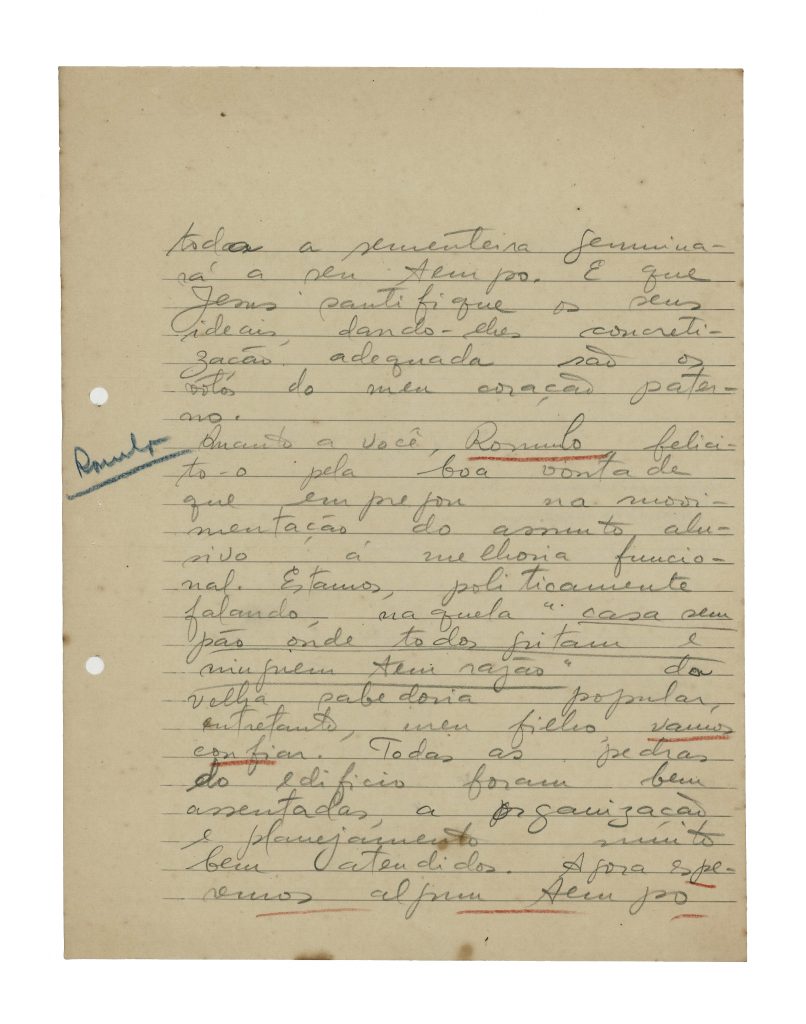 toda a sementeira germina-
rá a seu tempo. E que
Jesus santifique os seus
ideais, dando-lhes concreti-
zação adequada são os
vótos do meu coração pater-
no.
Romulo
Quanto a você, Romulo, felici-
to-o pela boa vontade
que empregou na movi-
mentação do assunto alu-
sivo á melhoria funcio-
nal. Estamos, politicamente
falando, naquela "casa sem
pão onde todos gritam e
ninguem tem razão" da
velha sabedoria popular,
entretanto, meu filho, vamos
confiar. Todas as pedras
do edificio foram bem
assentadas, a organização
e planejamento muito
bem atendidos. Agora espe-
remos algum tempo